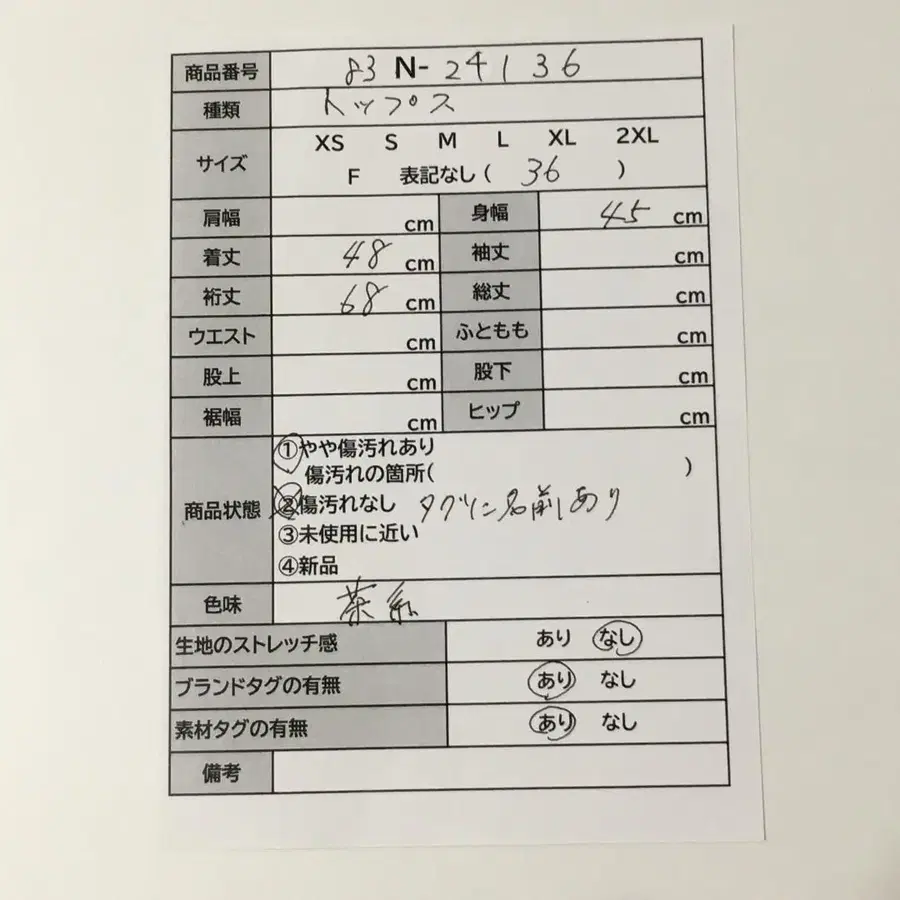 商品番号 83 N- 24136
種類 トップス
サイズ XS S M L XL 2XL
F 表記なし ( 36 )
肩幅 cm 身幅 45 cm
着丈 48 cm 袖丈 cm
裄丈 68 cm 総丈 cm
ウエスト cm ふともも cm
股上 cm 股下 cm
裾幅 cm ヒップ cm
商品状態 ①やや傷汚れあり
傷汚れの箇所( )
②傷汚れなし タグに名前あり
③未使用に近い
④新品
色味 茶系
生地のストレッチ感 あり なし
ブランドタグの有無 あり なし
素材タグの有無 あり なし
備考